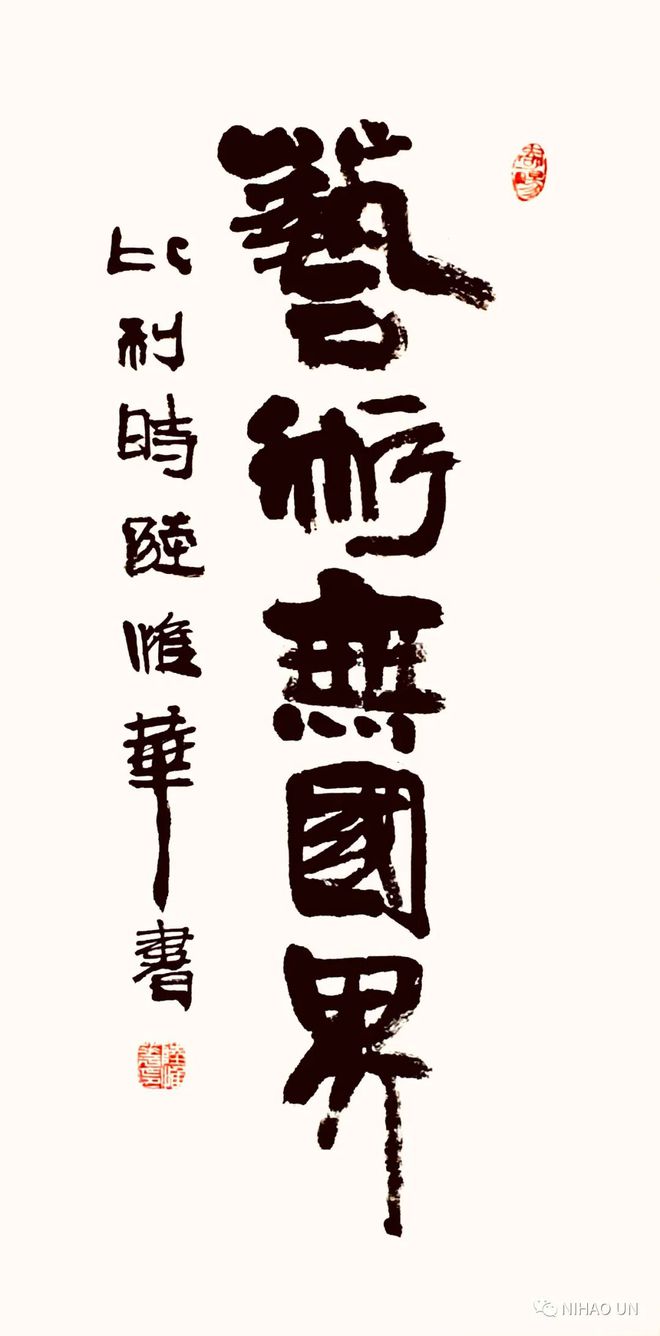 藝術無國界
比利時陸惟華書
NIHAO UN